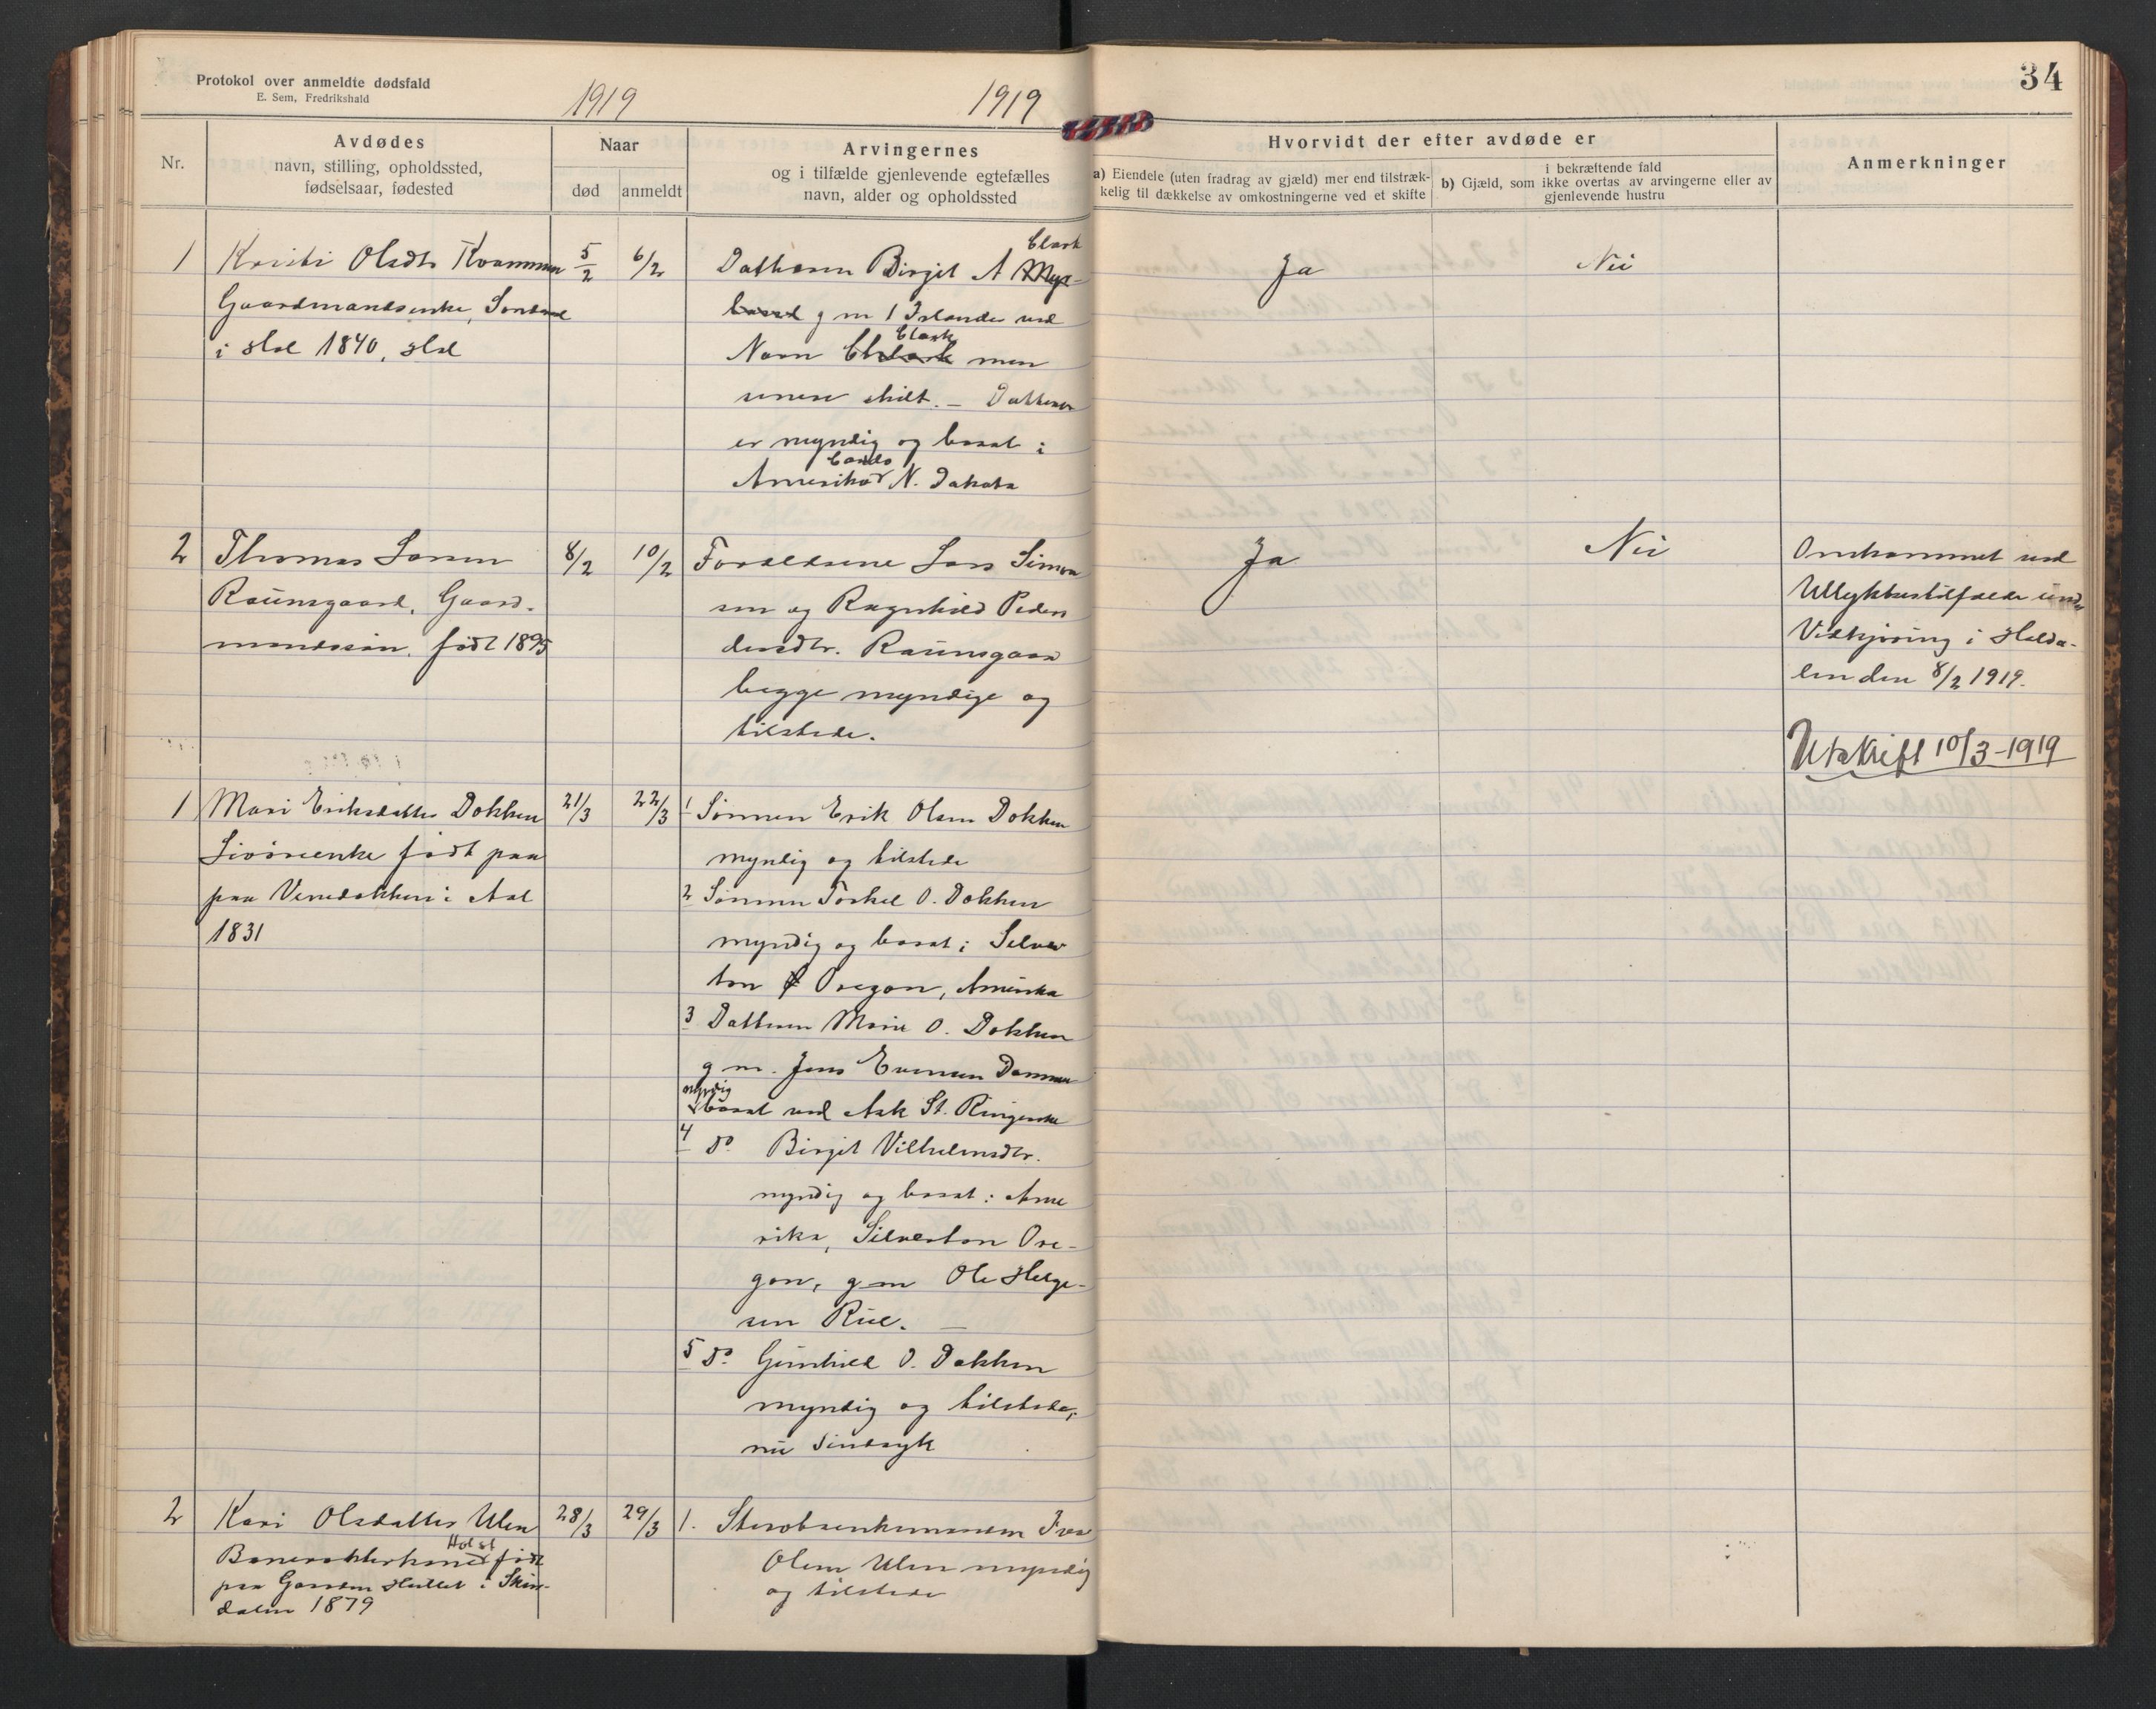 Protokol over anmeldte dødsfald
E. Sem, Fredrikshald
1919
1919
34
Nr.
Avdødes
navn, stilling, opholdssted,
fødselsaar, fødested
Naar
død
anmeldt
Arvingernes
og i tilfælde gjenlevende egtefælles
navn, alder og opholdssted
Hvorvidt der efter avdøde er
a) Eiendele (uten fradrag av gjæld) mer end tilstræk-
kelig til dækkelse av omkostningerne ved et skifte
b) Gjæld, som i bekræftende fald
ikke overtas av arvingerne eller av
gjenlevende hustru
Anmerkninger
1
Kristi Olsdtr Kvammen
Gaardmandsenke,
i Hol 1840, Hol
5/2
6/2
Clark
Datteren Birgit A Myr-
g m 1 Islænder ved
Clark
Navn men
senere skilt. – Datteren
er myndig og bosat i
Cando
Amerika N. Dakota
Ja
Nei
2
Thomas Larsen
Raunsgaard, Gaard-
mandssøn, født 1895
8/2
10/2
Forældrene Lars Simon
sen og Ragnhild Peders
dersdtr. Raunsgaard
begge myndige og
tilstede.
Ja
Nei
Omkommet ved
Ullykkestilfælde under
Vedkjøring i Holda-
len den 8/2 1919.
Utskrift 10/3-1919
1
Mari Eriksdatter Dokken
Livøreenke født paa
paa Vesledokken i Aal
1831
21/3
22/3
1 Sønnen Erik Olsen Dokken
myndig og tilstede
2 Sønnen Torkel O. Dokken
myndig og bosat i Silver
ton Oregon, Amerika
3 Datteren Marie O. Dokken
g m. Jens Evensen
myndig
bosat ved Ask St. Ringerike
4 Do Birgit Vilhelmsdtr.
myndig og bosat i Ame
rika, Silverton Ore-
gon, g m Ole Helge-
sen Rue. –
5 Do Gunhild O. Dokken
myndig og tilstede,
nu Sindsyk
2
Kari Olsdatter Ulen
Holst
Banevokterkone født
paa Gaarden Hullet i Skur-
dalen 1879
28/3
29/3
1. Ivar
Olsen Ulen myndig
og tilstede